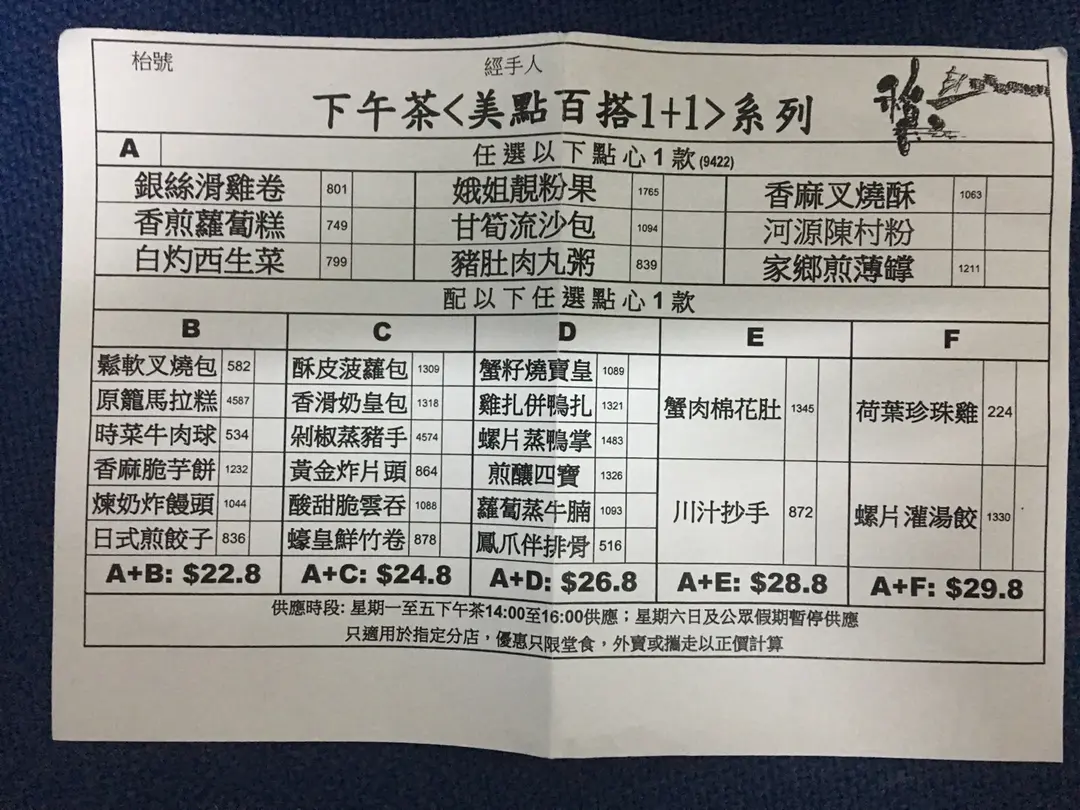 枱號 經手人
下午茶<美點百搭1+1>系列
A 任選以下點心1款(9422)
銀絲滑雞卷 801 娥姐靚粉果 1765 香麻叉燒酥 1063
香煎蘿蔔糕 749 甘筍流沙包 1094 河源陳村粉
白灼西生菜 799 豬肚肉丸粥 839 家鄉煎薄罉 1211
配以下任選點心1款
B C D E F
鬆軟叉燒包 582 酥皮菠蘿包 1309 蟹籽燒賣皇 1089
原籠馬拉糕 4587 香滑奶皇包 1318 雞扎併鴨扎 1321
蟹肉棉花肚 1345 荷葉珍珠雞 224
時菜牛肉球 534 剁椒蒸豬手 4574 螺片蒸鴨掌 1483
香麻脆芋餅 1232 黃金炸片頭 864 煎釀四寶 1326
煉奶炸饅頭 1044 酸甜脆雲吞 1088 蘿蔔蒸牛腩 1093
川汁抄手 872 螺片灌湯餃 1330
日式煎餃子 836 蠔皇鮮竹卷 878 鳳爪伴排骨 516
A+B: $22.8 A+C: $24.8 A+D: $26.8 A+E: $28.8 A+F: $29.8
供應時段: 星期一至五下午茶14:00至16:00供應；星期六日及公眾假期暫停供應
只適用於指定分店，優惠只限堂食，外賣或攜走以正價計算